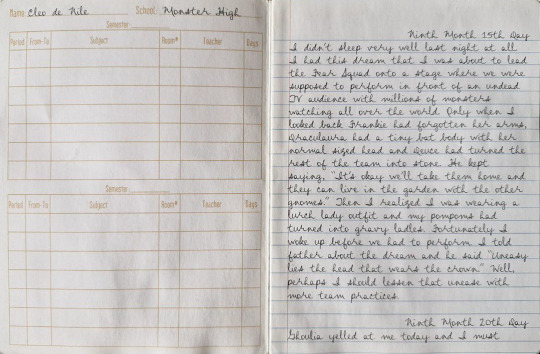 Name: Cleo de Nile School: Monster High
Semester:
Period From-To Subject Room# Teacher Days
Semester:
Period From-To Subject Room# Teacher Days
Ninth Month 15th Day
I didn't sleep very well last night at all
I had this dream that I was about to lead
the Fear Squad onto a stage where we were
supposed to perform in front of an undead
TV audience with millions of monsters
watching all over the world. Only when I
looked back Frankie had forgotten her arms,
Draculaura had a tiny bat body with her
normal sized head and Deuce had turned the
rest of the team into stone. He kept
saying, "It's okay we'll take them home and
they can live in the garden with the other
gnomes." Then I realized I was wearing a
lurch lady outfit and my pompoms had
turned into gravy ladles. Fortunately I
woke up before we had to perform. I told
father about the dream and he said "Uneasy
lies the head that wears the crown." Well,
perhaps I should lessen that unease with
more team practices.
Ninth Month 20th Day
Ghoulia yelled at me today and I must